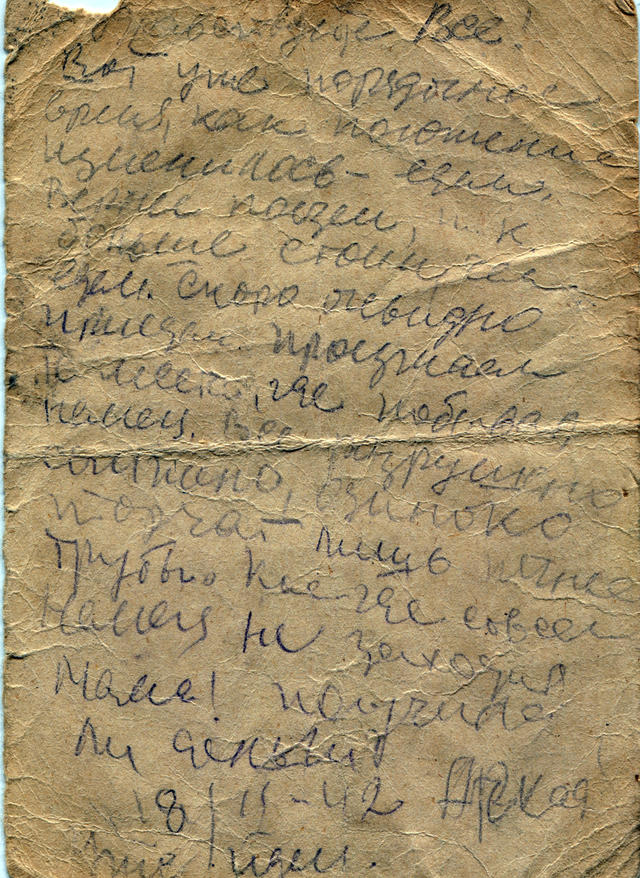 Здравствуйте Все!
Вот уже порядочное
время, как положение
изменилось - едем.
Вернее ползем, т.к
больше стоим, чем
едем. Скоро очевидно
приедем. Проезжаем
те места, где побывал
немец. Все разрушено
сожжено, одиноко
торчат лишь печные
трубы. Кое где совсем
немец не заходил
Мама! получила
ли деньги?
18/II-42